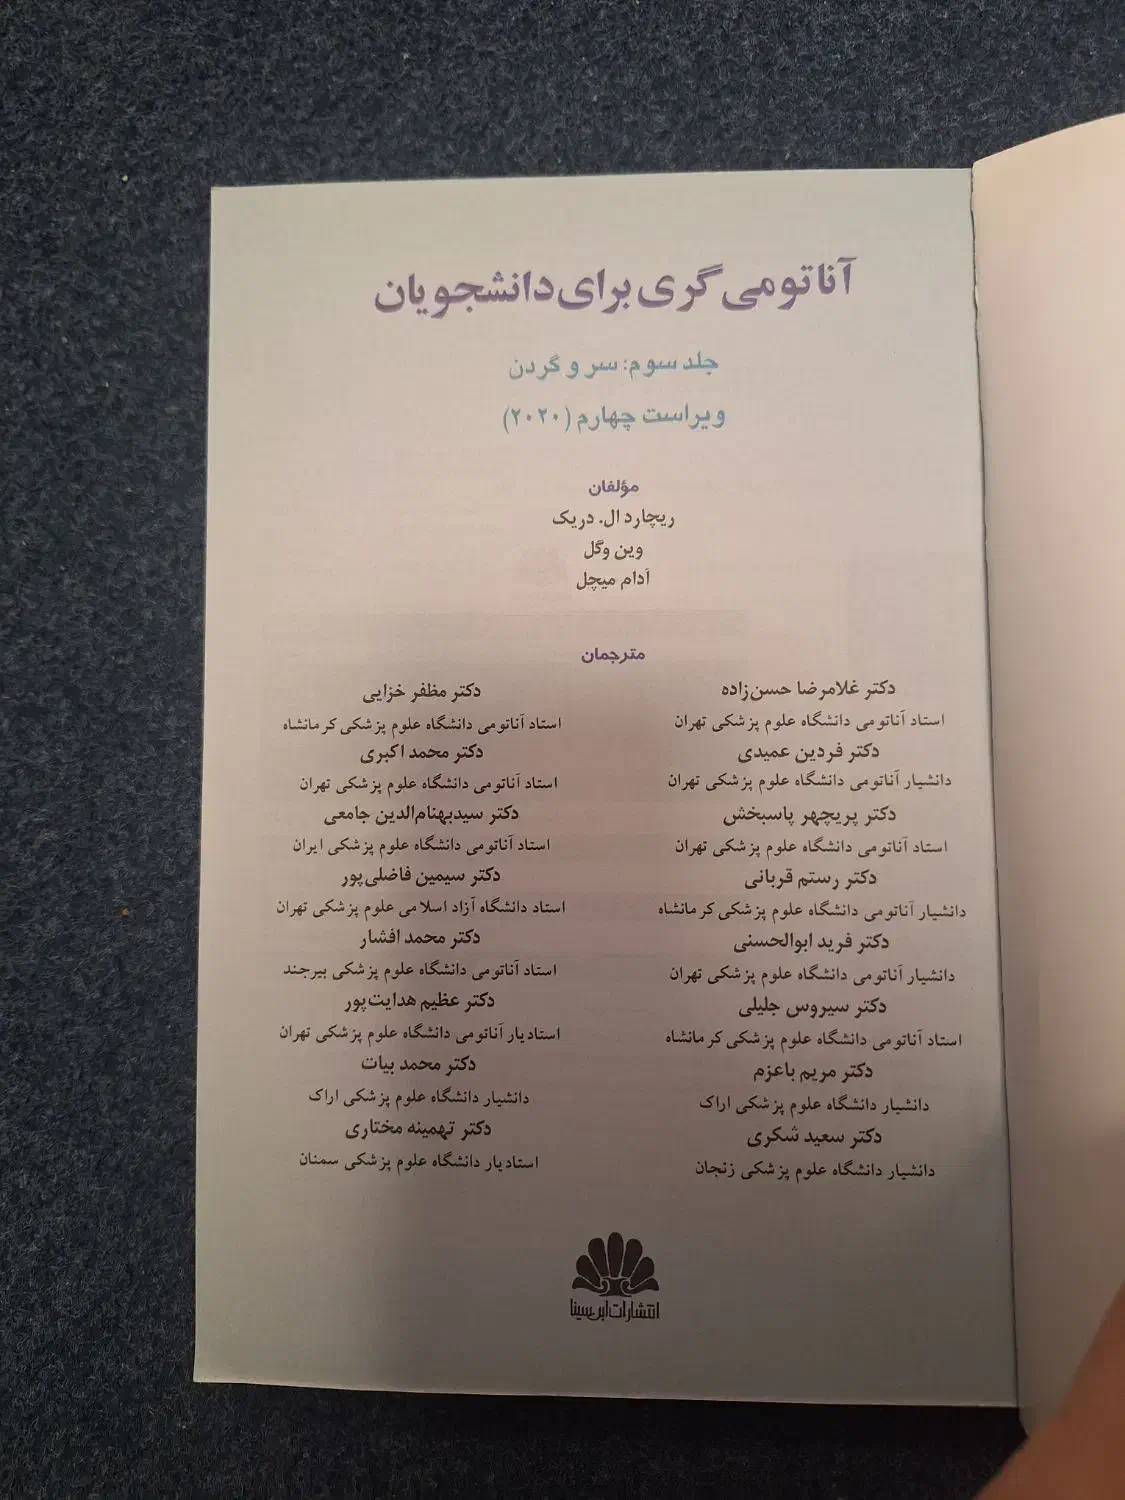 آناتومی گری برای دانشجویان
جلد سوم: سر و گردن
ویراست چهارم (۲۰۲۰)
مؤلفان
ریچارد ال. دریک
وین وگل
آدام میچل
مترجمان
دکتر غلامرضا حسن‌زاده
استاد آناتومی دانشگاه علوم پزشکی تهران
دکتر فردین عمیدی
دانشیار آناتومی دانشگاه علوم پزشکی تهران
دکتر پریچهر پاسبخش
استاد آناتومی دانشگاه علوم پزشکی تهران
دکتر رستم قربانی
دانشیار آناتومی دانشگاه علوم پزشکی کرمانشاه
دکتر فرید ابوالحسنی
دانشیار آناتومی دانشگاه علوم پزشکی تهران
دکتر سیروس جلیلی
استاد آناتومی دانشگاه علوم پزشکی کرمانشاه
دکتر مریم باعزم
دانشیار دانشگاه علوم پزشکی اراک
دکتر سعید شکری
دانشیار دانشگاه علوم پزشکی زنجان
دکتر مظفر خزایی
استاد آناتومی دانشگاه علوم پزشکی کرمانشاه
دکتر محمد اکبری
استاد آناتومی دانشگاه علوم پزشکی تهران
دکتر سیدبهنام‌الدین جامعی
استاد آناتومی دانشگاه علوم پزشکی ایران
دکتر سیمین فاضلی‌پور
استاد دانشگاه آزاد اسلامی علوم پزشکی تهران
دکتر محمد افشار
استاد آناتومی دانشگاه علوم پزشکی بیرجند
دکتر عظیم هدایت‌پور
استادیار آناتومی دانشگاه علوم پزشکی تهران
دکتر محمد بیات
دانشیار دانشگاه علوم پزشکی اراک
دکتر تهمینه مختاری
استادیار دانشگاه علوم پزشکی سمنان
انتشارات ابن‌سینا